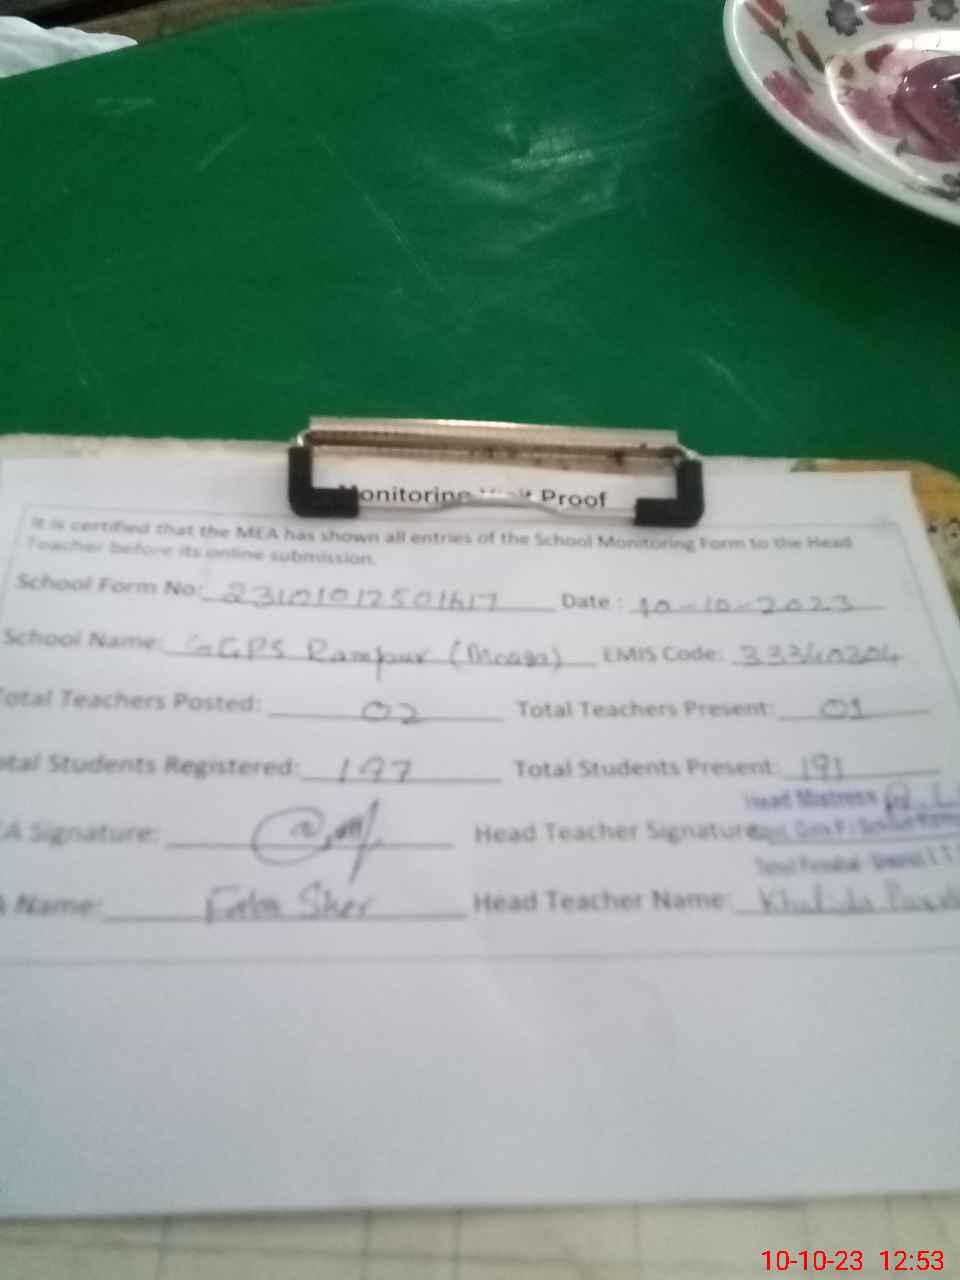 Monitoring Visit Proof
It is certified that the MEA has shown all entries of the School Monitoring Form to the Head
Teacher before its online submission.
School Form No: Date: 10-10-2023
School Name: GGPS Rampur EMIS Code:
Total Teachers Posted: 02 Total Teachers Present: 01
Total Students Registered: 197 Total Students Present: 191
Head Mistress
EA Signature: Head Teacher Signature:
A Name: Sher Head Teacher Name: Khalida
10-10-23 12:53